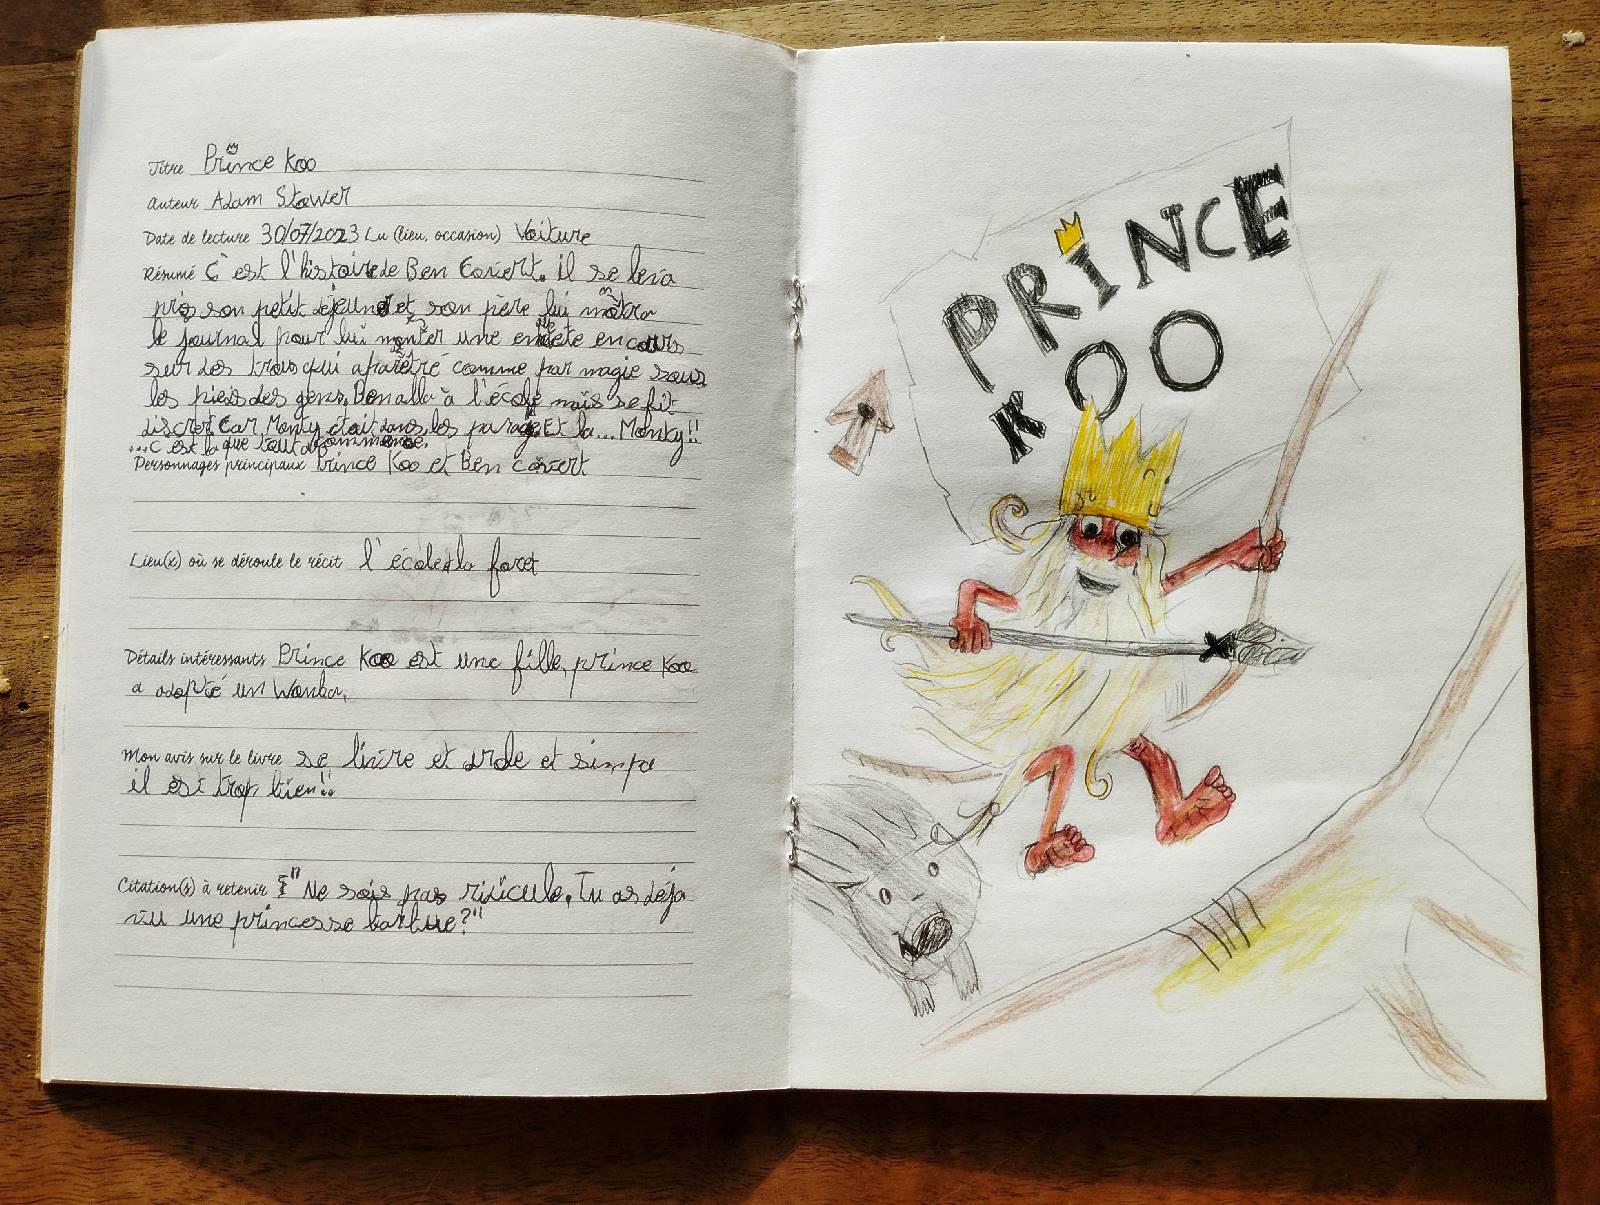 Titre Prince Koo
Auteur Adam Stower
Date de lecture 30/07/2023 Lu (lieu, occasion) Voiture
Résumé C'est l'histoire de Ben Covert. il se leva
pris son petit déjeuner et son père lui montra
le journal pour lui montrer une enquete en cours
sur des trous qui aparêtré comme par magie sous
les pieds des gens. Ben alla à l'école mais se fit
discret Car Monty était dans les parages Et la... Monty!!
...c'est la que tout commence.
Personnages principaux Prince Koo et Ben Covert
Lieu(x) où se déroule le récit l'école la foret
Détails intéressants Prince Koo est une fille, prince Koo
a adopté un Womba,
Mon avis sur le livre se livre et drole et simpa
il est trop bien!!
Citation(s) à retenir "Ne sois pas ridicule. Tu as deja
vu une princesse barbue?"
PRINCE
KOO